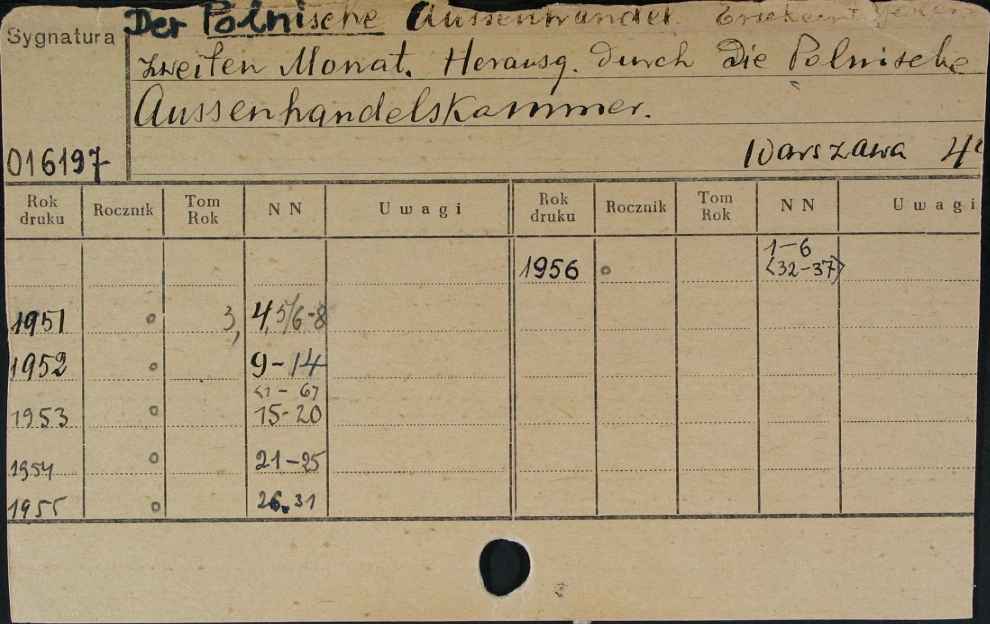 Der Polnische Aussenhandel. Erscheint jeden
Sygnatura
zweiten Monat. Herausg. durch Die Polnische
Aussenhandelskammer.
016197
Warszawa 4°
Rok druku Rocznik Tom Rok NN Uwagi Rok druku Rocznik Tom Rok NN Uwagi
1956 ° 1-6
<32-37>
1951 ° 3, 4, 5/6-8
1952 ° 9-14
1953 ° <1-6>
15-20
1954 ° 21-25
1955 ° 26.31